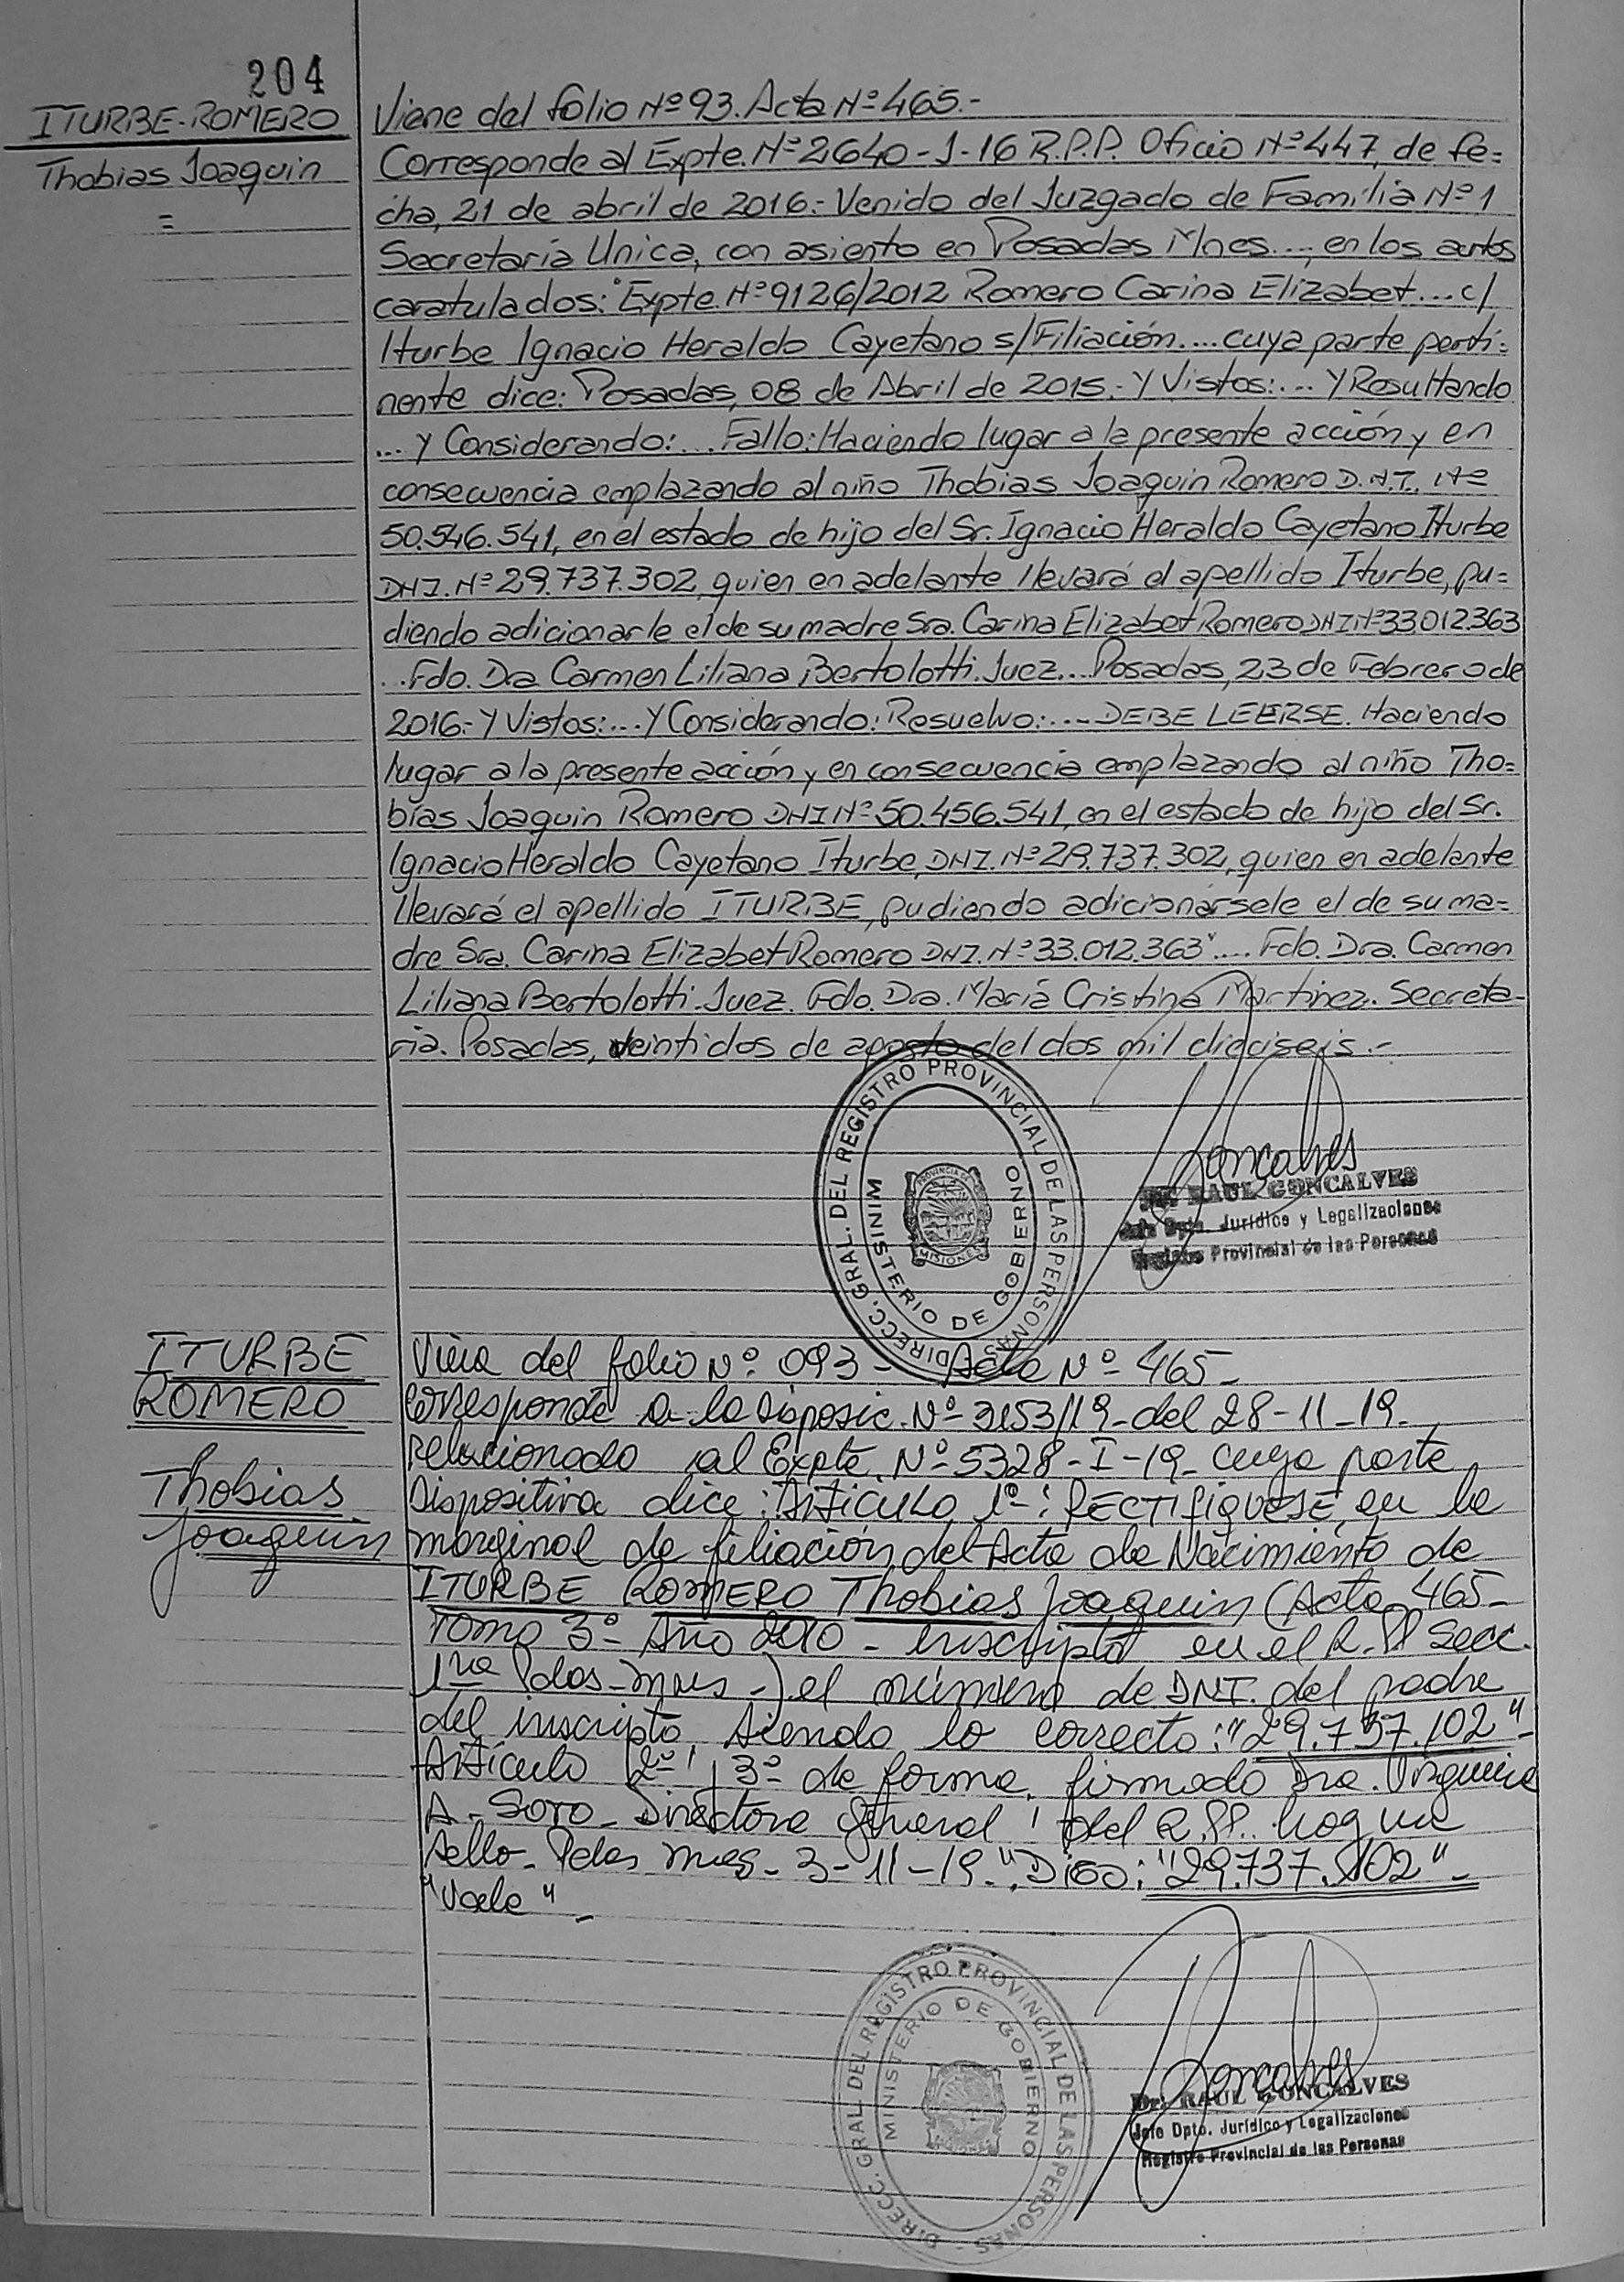 204
ITURBE-ROMERO
Thobias Joaquin
=
Viene del folio Nº 93. Acta Nº 465.-
Corresponde al Expte. Nº 2640-J-16 R.P.P. Oficio Nº 447, de fe=
cha, 21 de abril de 2016.- Venido del Juzgado de Familia Nº 1
Secretaría Unica, con asiento en Posadas Mnes..., en los autos
caratulados: "Expte. Nº 9126/2012 Romero Carina Elizabet... c/
Iturbe Ignacio Heraldo Cayetano s/Filiación.... cuya parte perti=
nente dice: Posadas, 08 de Abril de 2015.- Y Vistos:... Y Resultando
... Y Considerando:... Fallo: Haciendo lugar a la presente acción y en
consecuencia emplazando al niño Thobias Joaquin Romero D.N.I. Nº
50.546.541, en el estado de hijo del Sr. Ignacio Heraldo Cayetano Iturbe
DNI. Nº 29.737.302, quien en adelante llevará el apellido Iturbe, pu=
diendo adicionarle el de su madre Sra. Carina Elizabet Romero DNI Nº 33.012.363
... Fdo. Dra Carmen Liliana Bertolotti. Juez... Posadas, 23 de Febrero de
2016.- Y Vistos:... Y Considerando: Resuelvo:... DEBE LEERSE. Haciendo
lugar a la presente acción y en consecuencia emplazando al niño Tho=
bias Joaquin Romero DNI Nº 50.456.541, en el estado de hijo del Sr.
Ignacio Heraldo Cayetano Iturbe, DNI. Nº 29.737.302, quien en adelante
llevará el apellido ITURBE, pudiendo adicionársele el de su ma=
dre Sra. Carina Elizabet Romero DNI. Nº 33.012.363".... Fdo. Dra. Carmen
Liliana Bertolotti. Juez. Fdo. Dra. María Cristina Martinez. Secreta-
ria. Posadas, veintidos de agosto del dos mil dieciseis.-
DIRECC. GRAL. DEL REGISTRO PROVINCIAL DE LAS PERSONAS
MINISTERIO DE GOBIERNO
PROVINCIA DE
MISIONES
Goncalves
Dr. RAUL GONCALVES
Jefe Dpto. Jurídico y Legalizaciones
Registro Provincial de las Personas
ITURBE
ROMERO
Thobias
Joaquin
Viene del folio Nº 093 - Acta Nº 465-
Corresponde a la Disposic. Nº 3153/19- del 28-11-19-
relacionado al Expte. Nº 5328-I-19- cuya parte
Dispositiva dice: Artículo 1º: RECTIFIQUESE, en la
marginal de filiación del Acta de Nacimiento de
ITURBE ROMERO Thobias Joaquin (Acta 465-
Tomo 3º- Año 2010 - inscripto en el R.PP Secc.
1ra Pdas-Mnes-) el número de DNI. del padre
del inscripto, siendo lo correcto: "29.737.102"-
Artículo 2º y 3º de forma, firmado Dra.
A- Soto- Directora General del R.PP. hay un
sello- Pdas Mnes- 3-11-19-" Digo: "29.737.102"-
"Vale"-
DIRECC. GRAL DEL REGISTRO PROVINCIAL DE LAS PERSONAS
MINISTERIO DE GOBIERNO
Goncalves
Dr. RAUL GONCALVES
Jefe Dpto. Jurídico y Legalizaciones
Registro Provincial de las Personas